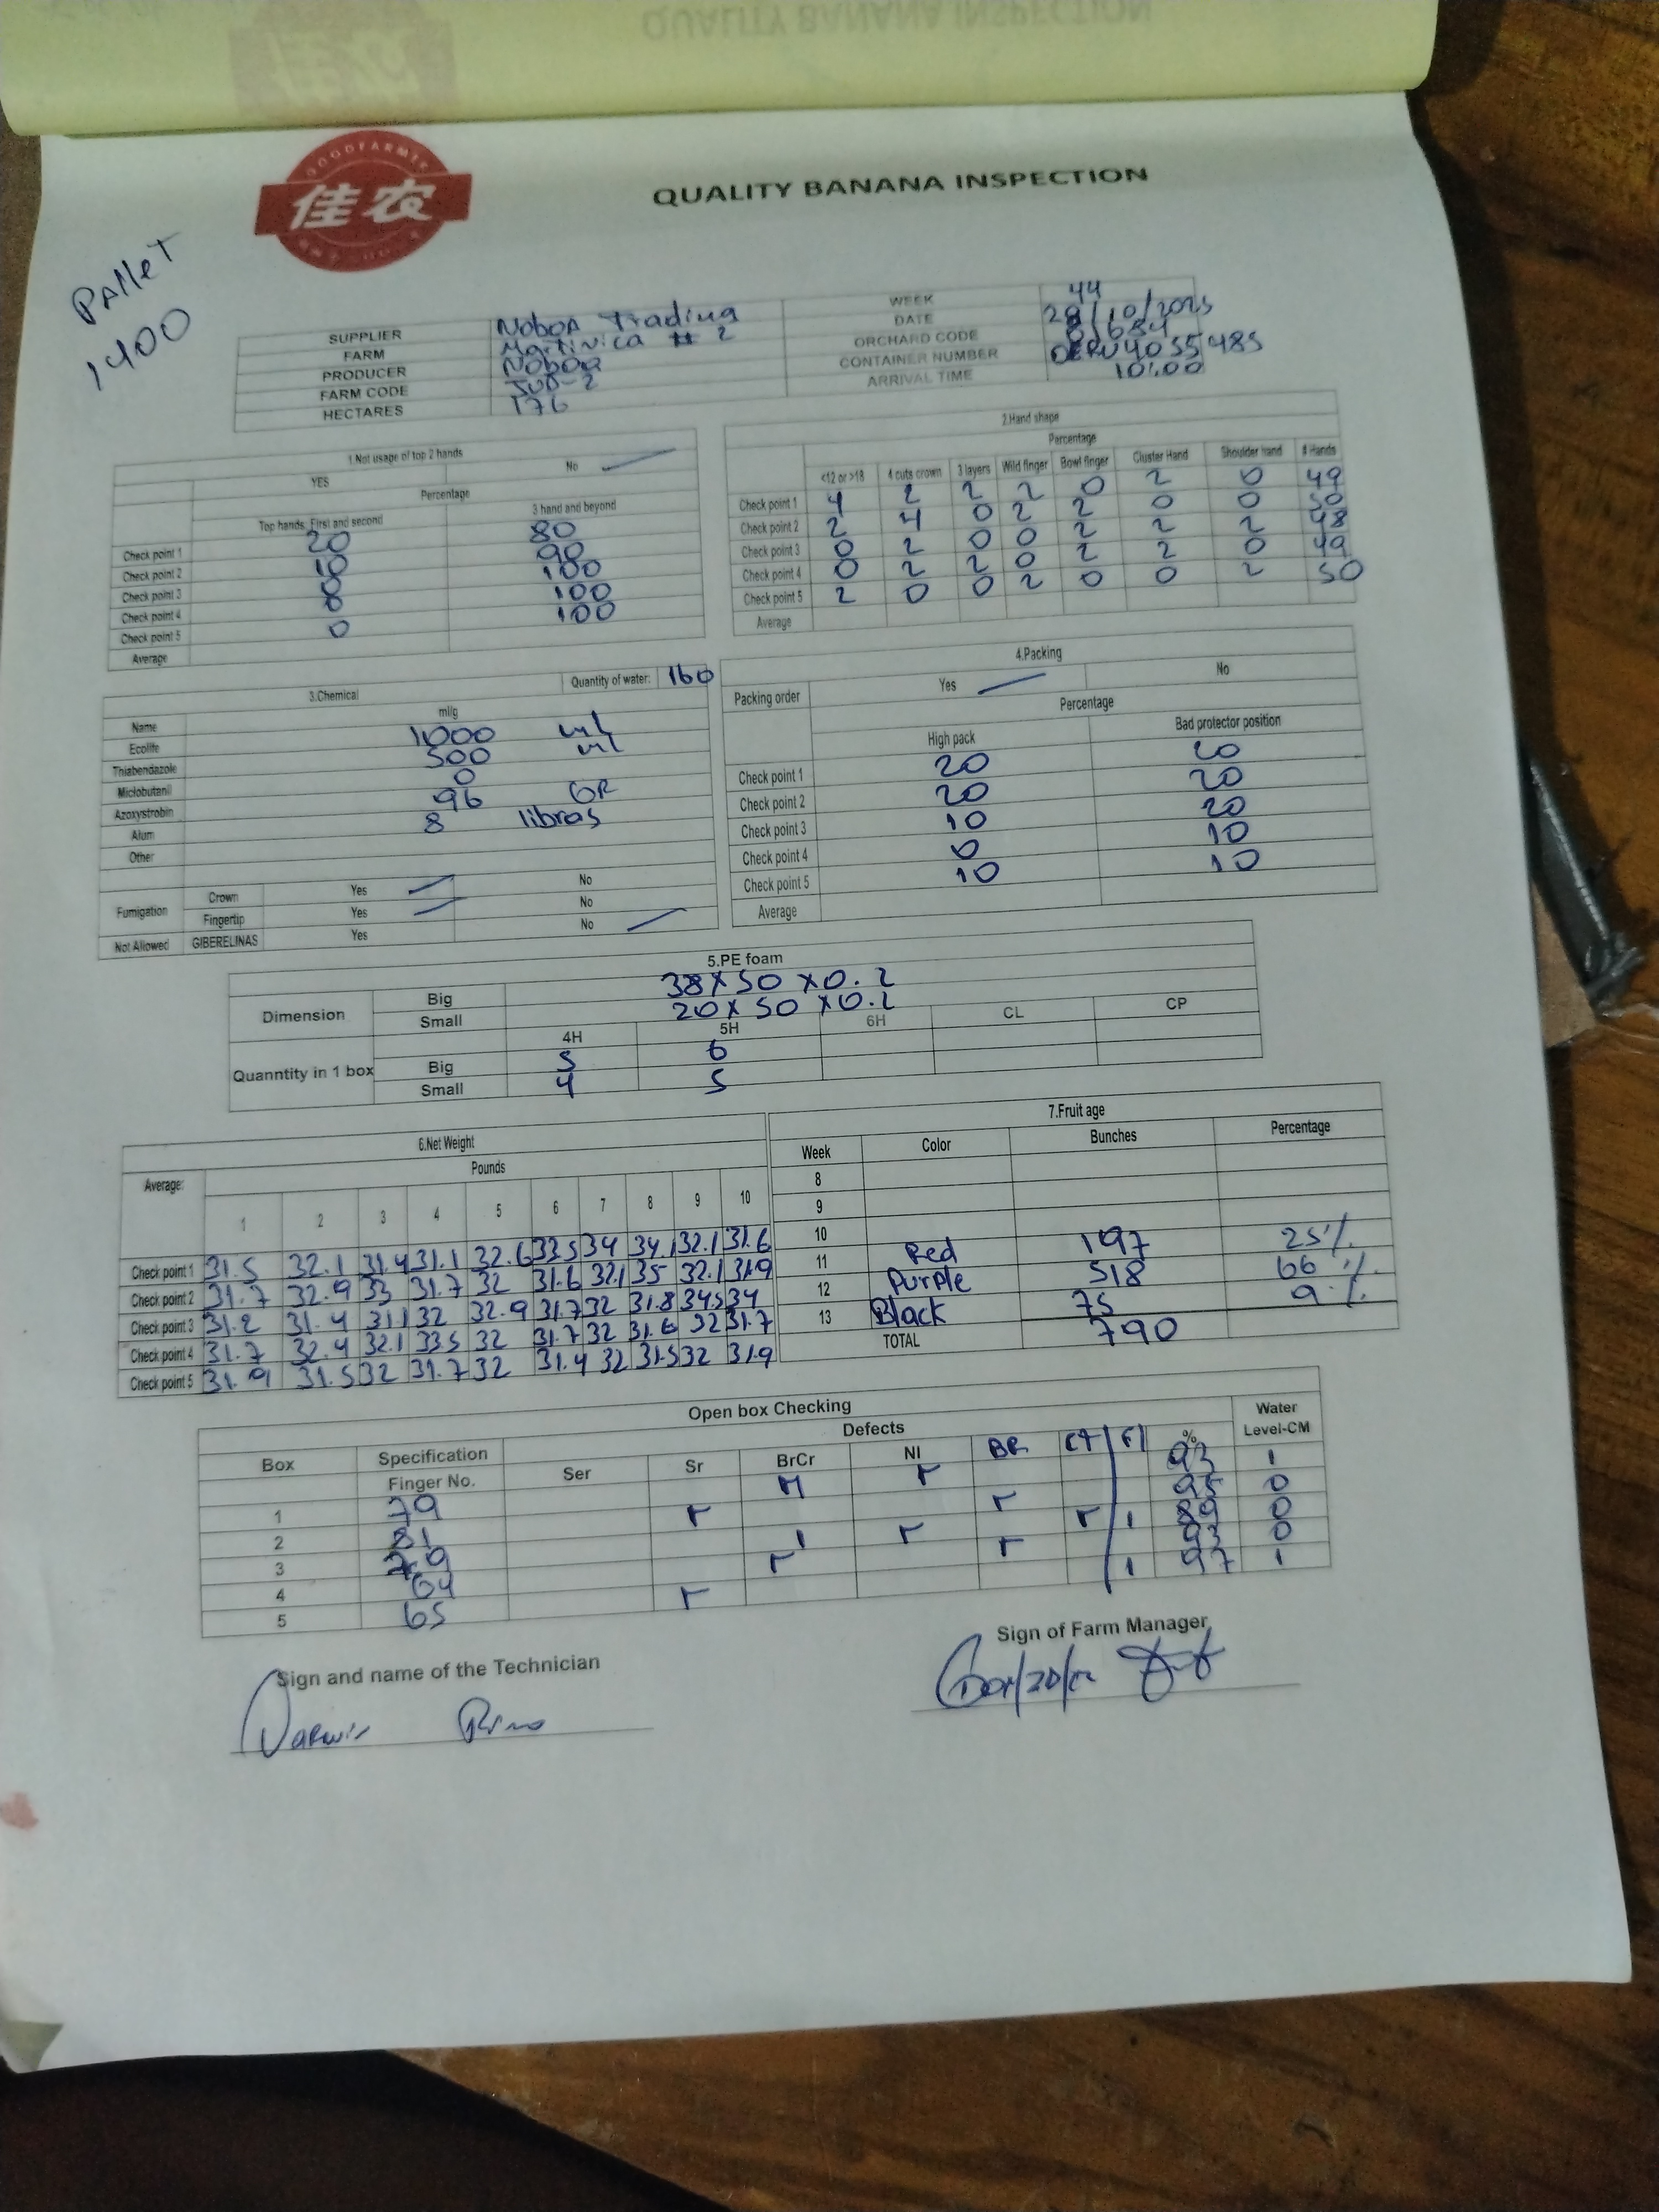 QUALITY BANANA INSPECTION
GOODFARMER
佳农
PAlleT
1400
SUPPLIER Noboa Trading WEEK 44
FARM Martinica # 2 DATE 28/10/2025
PRODUCER Noboa ORCHARD CODE
FARM CODE JUD-2 CONTAINER NUMBER
HECTARES 176 ARRIVAL TIME 10:00
1.Not usage of top 2 hands
YES No
Percentage
Top hands: First and second 3 hand and beyond
Check point 1 20 80
Check point 2 10 90
Check point 3 0 100
Check point 4 0 100
Check point 5 0 100
Average
2.Hand shape
Percentage
<12 or >18 4 cuts crown 3 layers Wild finger Bowl finger Cluster Hand Shoulder hand # Hands
Check point 1 4 2 2 2 0 2 0 49
Check point 2 2 4 0 2 2 0 0 50
Check point 3 0 2 0 0 2 2 2 48
Check point 4 0 2 2 0 2 2 0 49
Check point 5 2 0 0 2 0 0 2 50
Average
3.Chemical Quantity of water: 160
Name ml/g
Ecolife 1000 ml
Thiabendazole 500 ml
Miclobutanil 0
Azoxystrobin 96 GR
Alum 8 libras
Other
Fumigation Crown Yes No
Fingertip Yes No
Not Allowed GIBERELINAS Yes No
4.Packing
Packing order Yes No
Percentage
High pack Bad protector position
Check point 1 20 20
Check point 2 20 20
Check point 3 10 20
Check point 4 0 10
Check point 5 10 10
Average
5.PE foam
Dimension Big 38X50 X0.2
Small 20X50 X0.2
4H 5H 6H CL CP
Quanntity in 1 box Big 5 6
Small 4 5
6.Net Weight
Pounds
Average:
1 2 3 4 5 6 7 8 9 10
Check point 1 31.5 32.1 31.4 31.1 32.6 33.5 34 34.1 32.1 31.6
Check point 2 31.7 32.9 33 31.7 32 31.6 32.1 35 32.1 31.9
Check point 3 31.2 31.4 31.1 32 32.9 31.7 32 31.8 34.5 34
Check point 4 31.7 32.4 32.1 33.5 32 31.7 32 31.6 32 31.7
Check point 5 31.9 31.5 32 31.7 32 31.4 32 31.5 32 31.9
7.Fruit age
Week Color Bunches Percentage
8
9
10
11 Red 197 25%
12 Purple 518 66%
13 Black 75 9%
TOTAL 790
Open box Checking
Box Specification Defects Water
Finger No. Ser Sr BrCr NI BR CT F1 % Level-CM
1 79 M r 93 1
2 81 r r 95 0
3 79 1 r r 1 89 0
4 64 r r 93 0
5 65 r 1 97 1
Sign and name of the Technician Sign of Farm Manager
Darwin